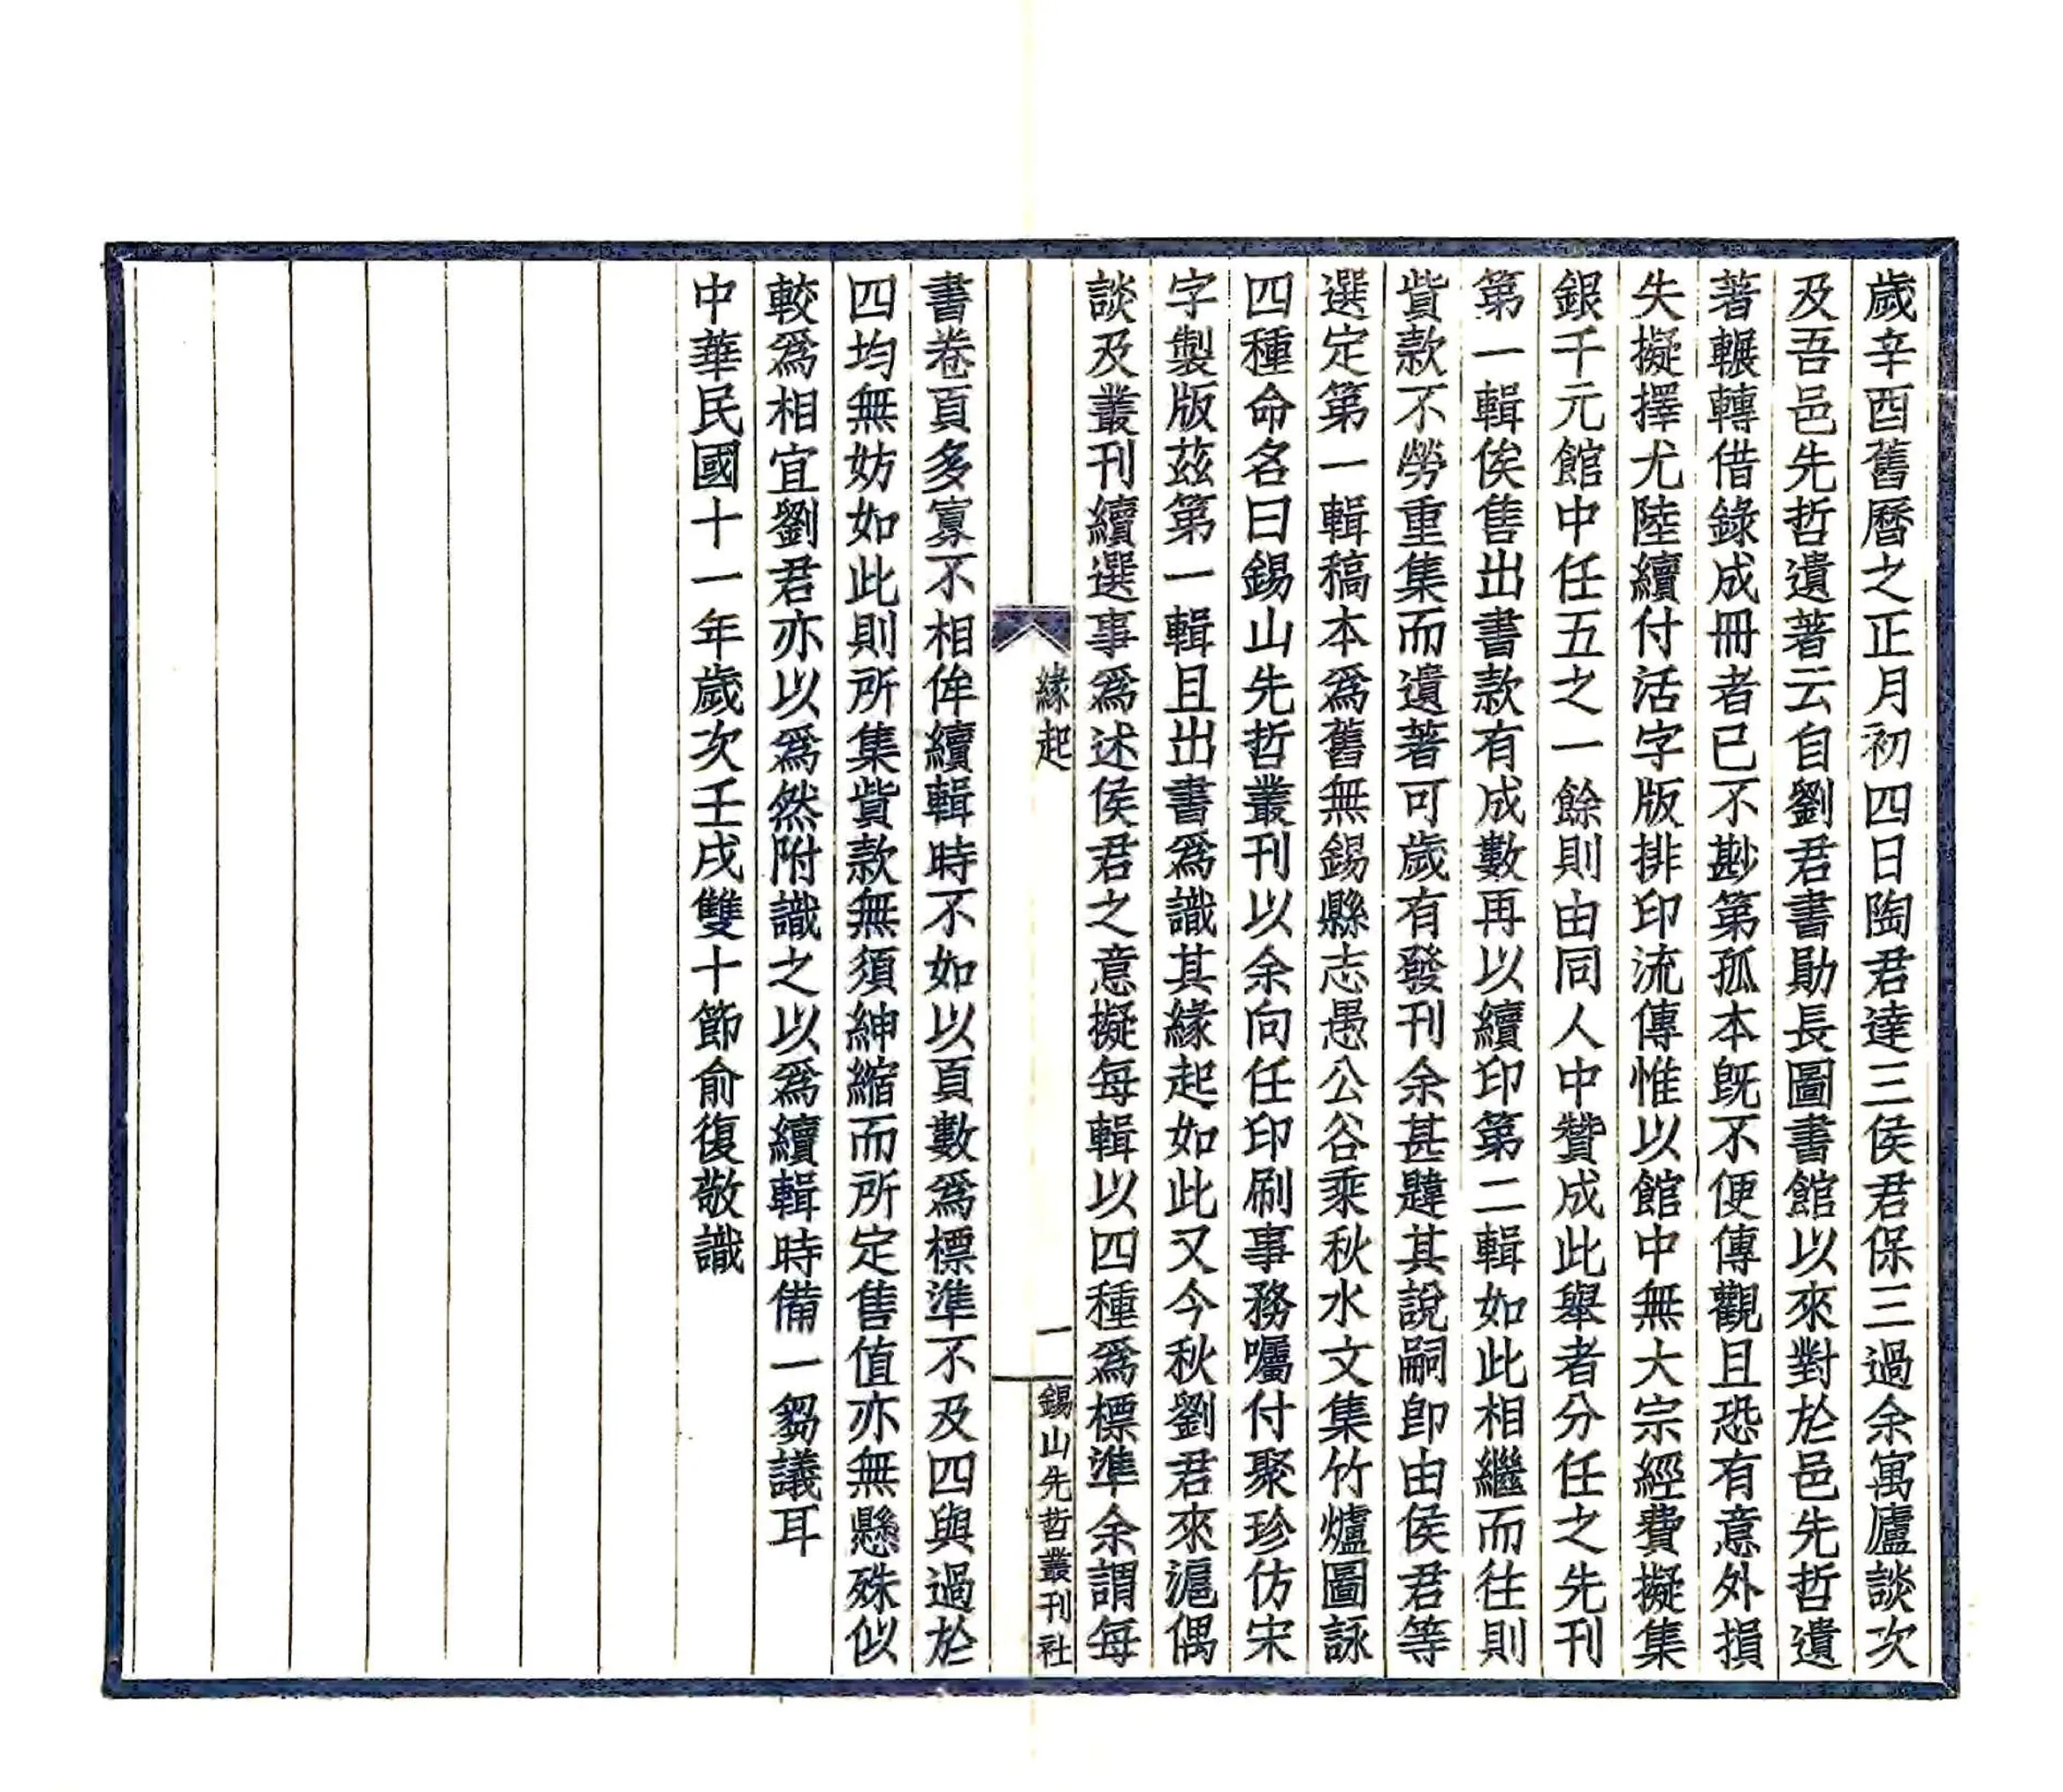 歲辛酉舊曆之正月初四日陶君達三侯君保三過余寓廬談次
及吾邑先哲遺著云自劉君書勛長圖書館以來對於邑先哲遺
著輾轉借錄成冊者已不尠第孤本旣不便傳觀且恐有意外損
失擬擇尤陸續付活字版排印流傳惟以館中無大宗經費擬集
銀千元館中任五之一餘則由同人中贊成此舉者分任之先刊
第一輯俟售出書款有成數再以續印第二輯如此相繼而往則
貲款不勞重集而遺著可歲有發刊余甚韙其說嗣卽由侯君等
選定第一輯稿本爲舊無錫縣志愚公谷乘秋水文集竹爐圖詠
四種命名曰錫山先哲叢刊以余向任印刷事務囑付聚珍仿宋
字製版茲第一輯且出書爲識其緣起如此又今秋劉君來滬偶
談及叢刊續選事爲述侯君之意擬每輯以四種爲標準余謂每
緣起
一
錫山先哲叢刊社
書卷頁多寡不相侔續輯時不如以頁數爲標準不及四與過於
四均無妨如此則所集貲款無須紳縮而所定售値亦無懸殊似
較爲相宜劉君亦以爲然附識之以爲續輯時備一芻議耳
中華民國十一年歲次壬戌雙十節俞復敬識